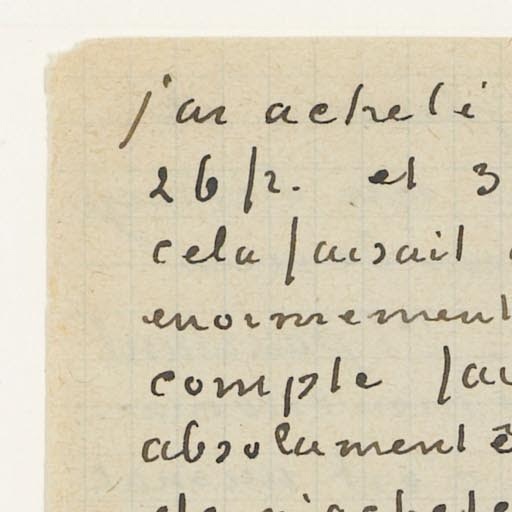 j'ai acheté
26 fr. et 3
cela faisait
enormement
compte fai
absolument ê
de m'achete